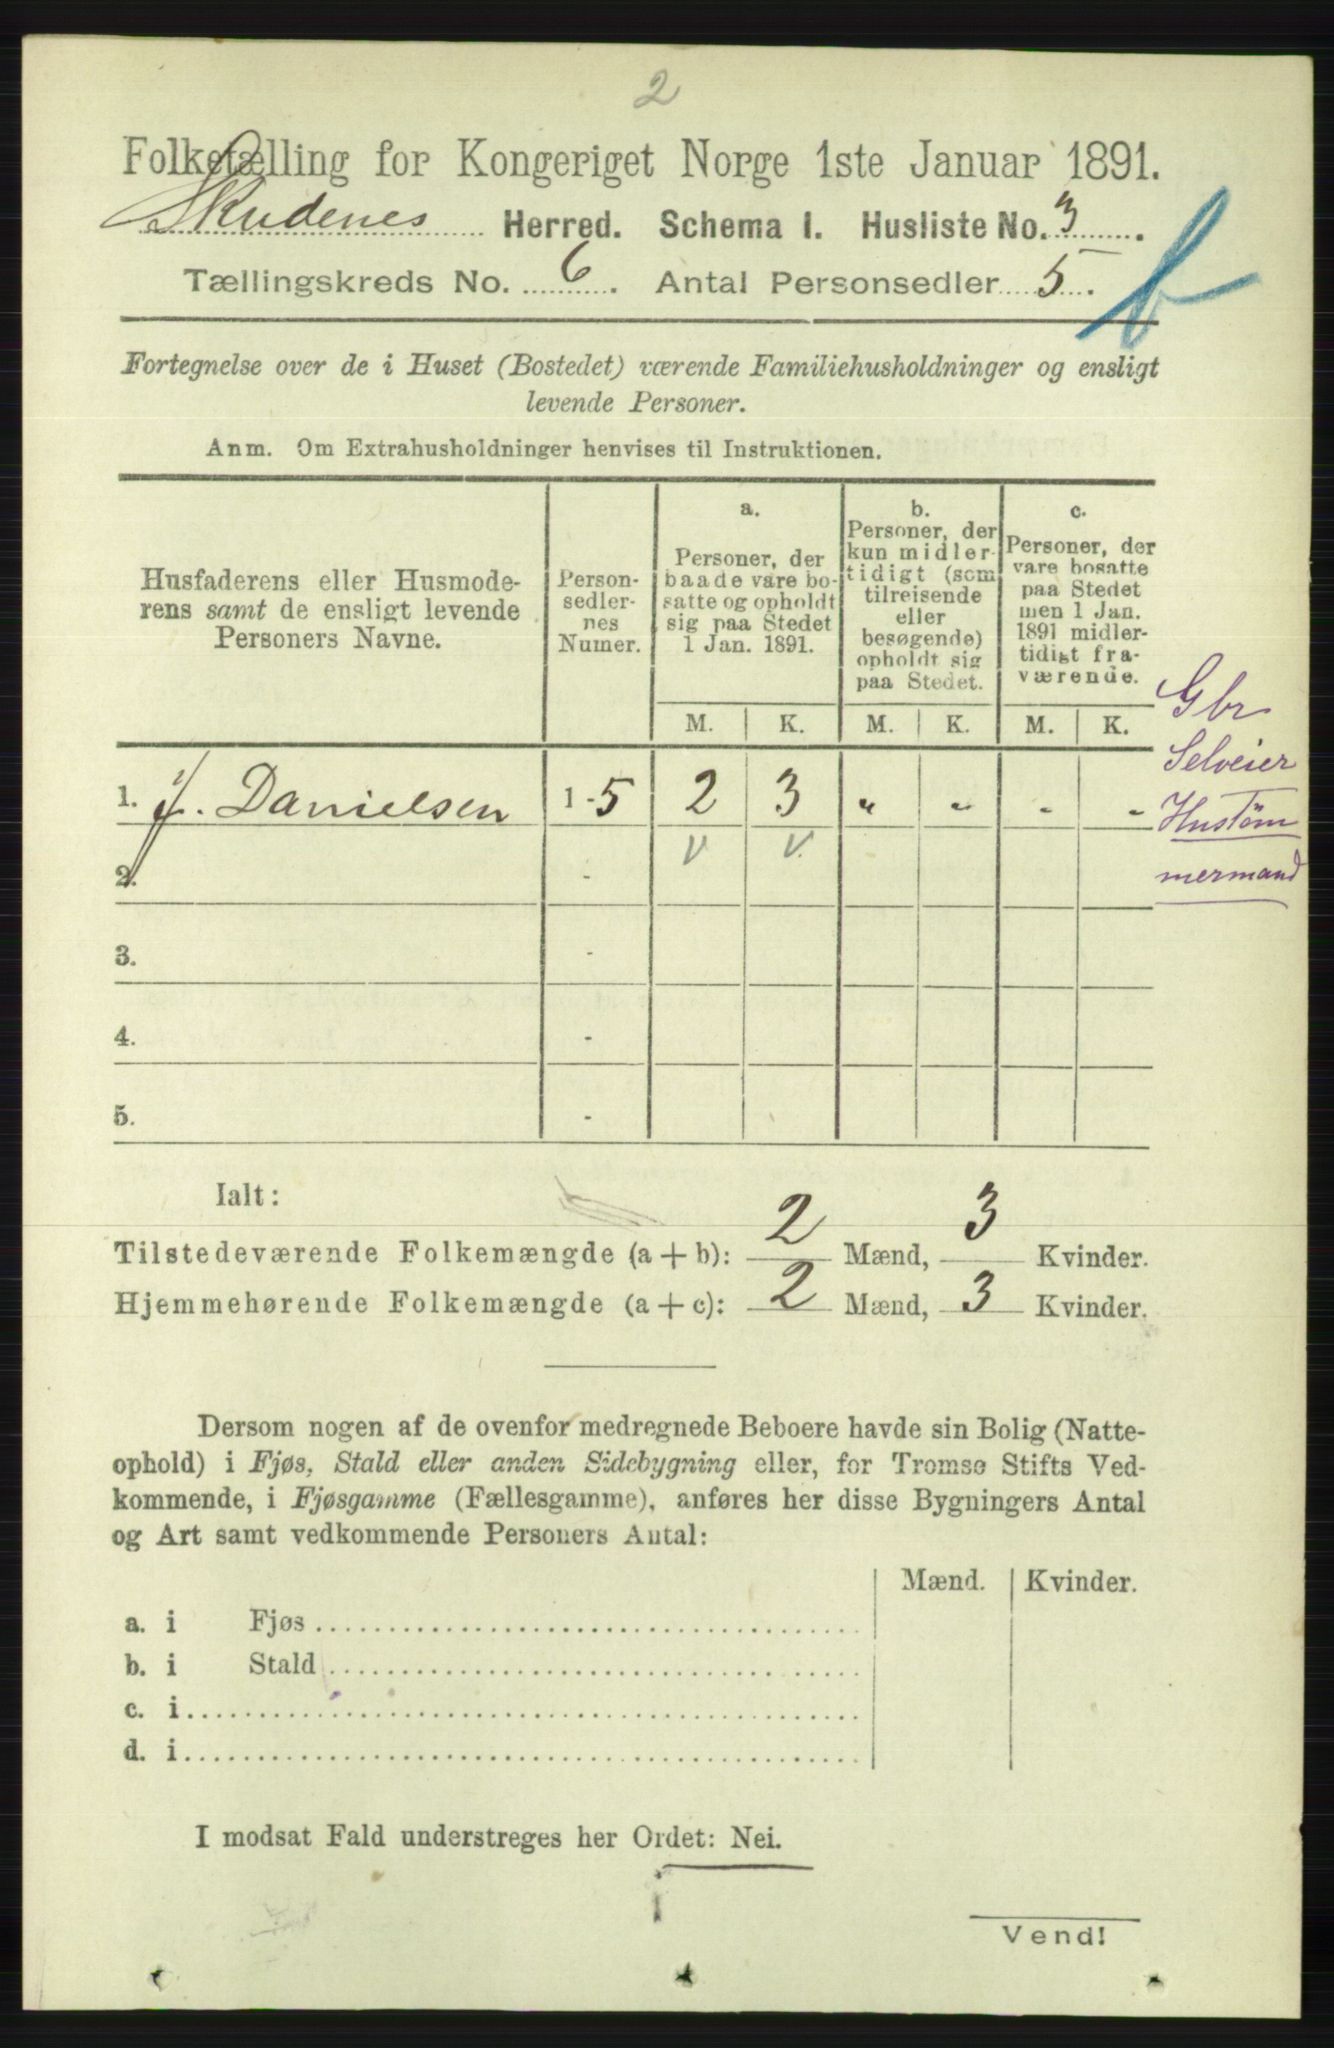 2
Folketælling for Kongeriget Norge 1ste Januar 1891.
Skudenes Herred. Schema I. Husliste No. 3.
Tællingskreds No. 6. Antal Personsedler 5.
Fortegnelse over de i Huset (Bostedet) værende Familiehusholdninger og ensligt
levende Personer.
Anm. Om Extrahusholdninger henvises til Instruktionen.
Husfaderens eller Husmode-
rens samt de ensligt levende
Personers Navne.
Person-
sedler-
nes
Numer.
a.
Personer, der
baade vare bo-
satte og opholdt
sig paa Stedet
1 Jan. 1891.
b.
Personer, der
kun midler-
tidigt (som
tilreisende
eller
besøgende)
opholdt sig
paa Stedet.
c.
Personer, der
vare bosatte
paa Stedet
men 1 Jan.
1891 midler-
tidigt fra-
værende.
M. K. M. K. M. K.
Gbr
Selveier
Hustøm
mermand
1. J. Danielsen 1-5 2 3 „ „ - -
2. - V V
3. -
4. -
5. -
Ialt:
Tilstedeværende Folkemængde (a + b): 2 Mænd, 3 Kvinder.
Hjemmehørende Folkemængde (a + c): 2 Mænd, 3 Kvinder.
Dersom nogen af de ovenfor medregnede Beboere havde sin Bolig (Natte-
ophold) i Fjøs, Stald eller anden Sidebygning eller, for Tromsø Stifts Ved-
kommende, i Fjøsgamme (Fællesgamme), anføres her disse Bygningers Antal
og Art samt vedkommende Personers Antal:
Mænd. Kvinder.
a. i Fjøs
b. i Stald
c. i
d. i
I modsat Fald understreges her Ordet: Nei.
Vend!